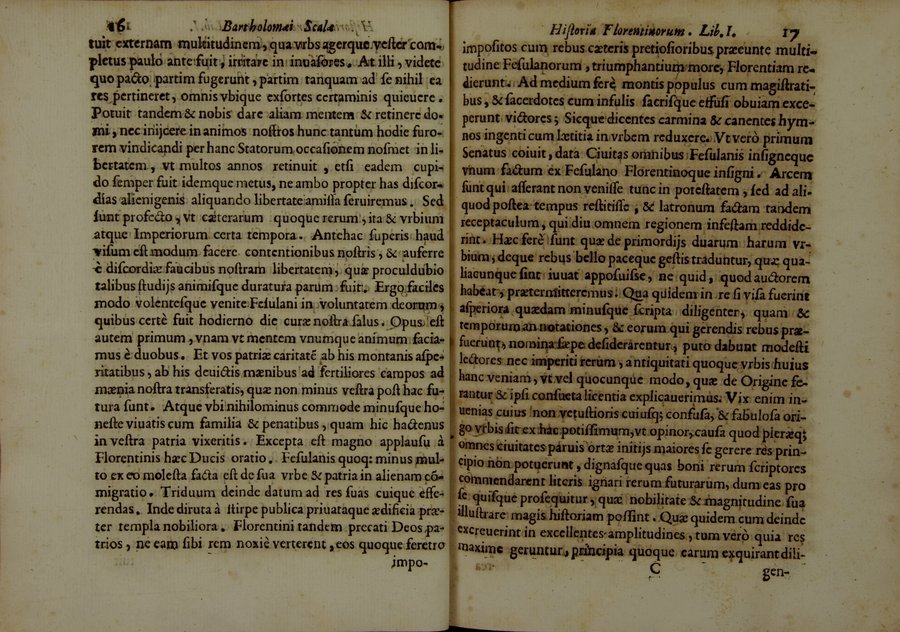 16 Bartholomæi Scalæ
tuit externam multitudinem, qua vrbs agerque vester com-
pletus paulo ante fuit, irritare in inuasores. At illi, videte
quo pacto partim fugerunt, partim tanquam ad se nihil ea
res pertineret, omnis vbique exsortes certaminis quieuere.
Potuit tandem & nobis dare aliam mentem & retinere do-
mi, nec inijcere in animos nostros hunc tantum hodie furo-
rem vindicandi per hanc Statorum occasionem nosmet in li-
bertatem, vt multos annos retinuit, etsi eadem cupi-
do semper fuit idemque metus, ne ambo propter has discor-
dias alienigenis aliquando libertate amissa seruiremus. Sed
sunt profecto, vt cæterarum quoque rerum, ita & vrbium
atque Imperiorum certa tempora. Antehac superis haud
visum est modum facere contentionibus nostris, & auferre
è discordiæ faucibus nostram libertatem, quæ proculdubio
talibus studijs animisque duratura parum fuit. Ergo faciles
modo volentesque venite Fesulani in voluntatem deorum,
quibus certè fuit hodierno die curæ nostra salus. Opus est
autem primum, vnam vt mentem vnumque animum facia-
mus è duobus. Et vos patriæ caritatē ab his montanis aspe-
ritatibus, ab his deuictis mænibus ad fertiliores campos ad
mænia nostra transferatis, quæ non minus vestra post hac fu-
tura sunt. Atque vbi nihilominus commode minusque ho-
neste viuatis cum familia & penatibus, quam hic hactenus
in vestra patria vixeritis. Excepta est magno applausu à
Florentinis hæc Ducis oratio. Fesulanis quoq: minus mul-
to ex eo molesta facta est de sua vrbe & patria in alienam cō-
migratio. Triduum deinde datum ad res suas cuique effe-
rendas. Inde diruta à stirpe publica priuataque ædificia præ-
ter templa nobiliora. Florentini tandem precati Deos pa-
trios, ne eam sibi rem noxiè verterent, eos quoque feretro
impo-
Historia Florentinorum. Lib. I. 17
impositos cum rebus cæteris pretiosioribus præeunte multi-
tudine Fesulanorum, triumphantium more, Florentiam re-
dierunt. Ad medium ferè montis populus cum magistrati-
bus, & sacerdotes cum infulis sacrisque effusi obuiam exce-
perunt victores; Sicque dicentes carmina & canentes hym-
nos ingenti cum lætitia in vrbem reduxere. Vt verò primum
Senatus coiuit, data Ciuitas omnibus Fesulanis insigneque
vnum factum ex Fesulano Florentinoque insigni. Arcem
sunt qui asserant non venisse tunc in potestatem, sed ad ali-
quod postea tempus restitisse, & latronum factam tandem
receptaculum, qui diu omnem regionem infestam reddide-
rint. Hæc ferè sunt quæ de primordijs duarum harum vr-
bium, deque rebus bello paceque gestis traduntur, quæ qua-
liacunque sint iuuat apposuisse, ne quid, quod auctorem
habeat, prætermitteremus. Qua quidem in re si visa fuerint
asperiora quædam minusque scripta diligenter, quam &
temporum annotationes, & eorum qui gerendis rebus præ-
fuerunt, nomina sæpe desiderarentur, puto dabunt modesti
lectores nec imperiti rerum, antiquitati quoque vrbis huius
hanc veniam, vt vel quocunque modo, quæ de Origine fe-
rantur & ipsi consueta licentia explicauerimus. Vix enim in-
uenias cuius non vetustioris cuiusq; confusa, & fabulosa ori-
go vrbis sit ex hac potissimum, vt opinor, causa quod pleræq;
omnes ciuitates paruis ortæ initijs maiores se gerere res prin-
cipio non potuerunt, dignasque quas boni rerum scriptores
commendarent literis ignari rerum futurarum, dum eas pro
se quisque prosequitur, quæ nobilitate & magnitudine sua
illustrare magis historiam possint. Quæ quidem cum deinde
excreuerint in excellentes amplitudines, tum verò quia res
maxime geruntur, principia quoque earum exquirant dili-
C gen-